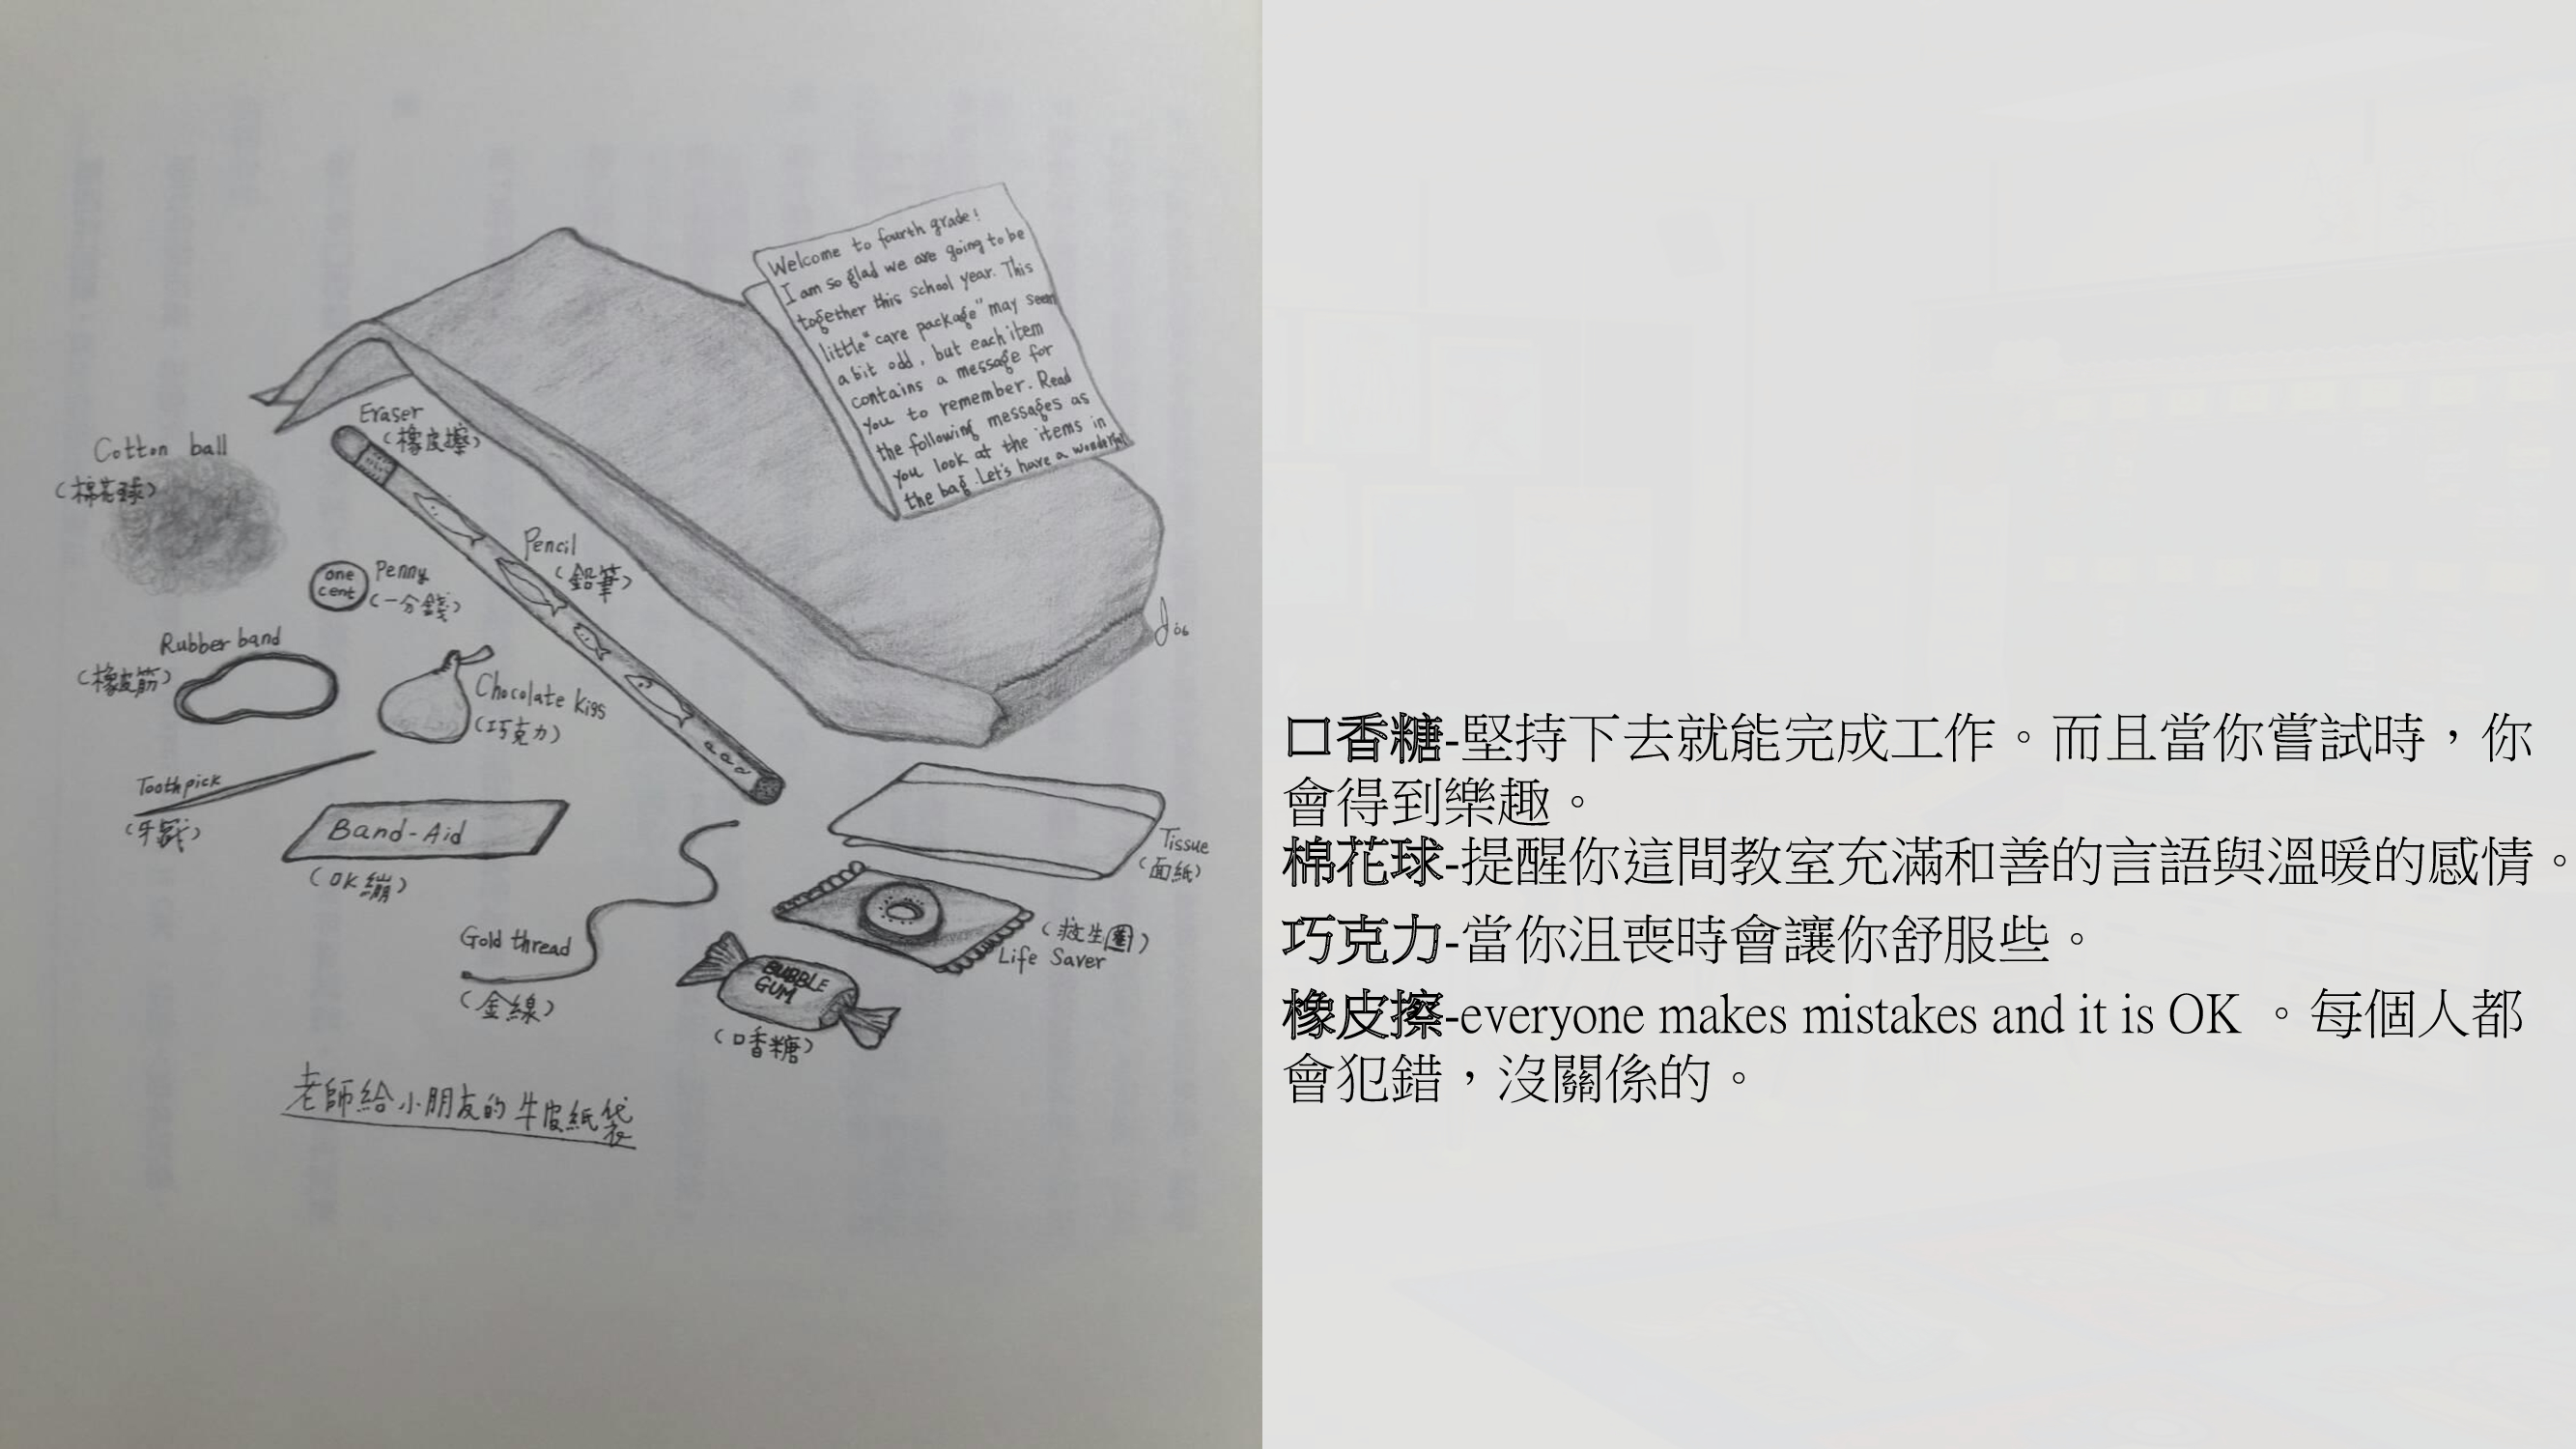 Welcome to fourth grade!
I am so glad we are going to be
together this school year. This
little "care package" may seem
a bit odd, but each item
contains a message for
you to remember. Read
the following messages as
you look at the items in
the bag. Let's have a wonderful
Eraser
(橡皮擦)
Cotton ball
(棉花球)
Pencil
(鉛筆)
one
cent
Penny
(一分錢)
Rubber band
(橡皮筋)
Chocolate Kiss
(巧克力)
Toothpick
(牙籤)
Band-Aid
(OK繃)
Tissue
(面紙)
Gold thread
(金線)
(救生圈)
Life Saver
BUBBLE
GUM
(口香糖)
老師給小朋友的牛皮紙袋
口香糖-堅持下去就能完成工作。而且當你嘗試時，你
會得到樂趣。
棉花球-提醒你這間教室充滿和善的言語與溫暖的感情。
巧克力-當你沮喪時會讓你舒服些。
橡皮擦-everyone makes mistakes and it is OK 。每個人都
會犯錯，沒關係的。